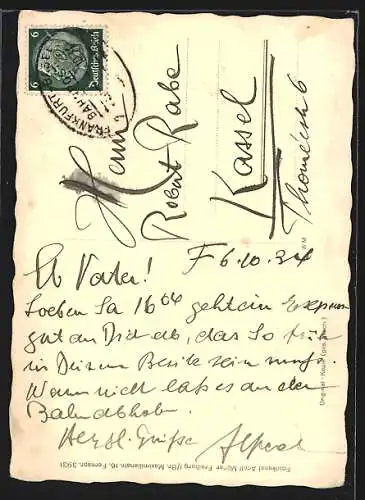 6 Deutsches Reich 6
FRANKFURT
BAHN
Herrn
Robert Rabe
Kassel
Thoméestr 6
F 6.10.34
Lb Vater!
Soeben Sa 16 04 geht ein Express
gut an Dich ab, das So früh
in Deinem Besitz sein muß.
Wenn nicht laß es an der
Bahn abholen.
Herzl. Grüße
Original-Kopie (ges. gesch.)
Fotokunst Adolf Müller Freiburg i/Br. Maximilianstr. 16, Fernspr. 3931